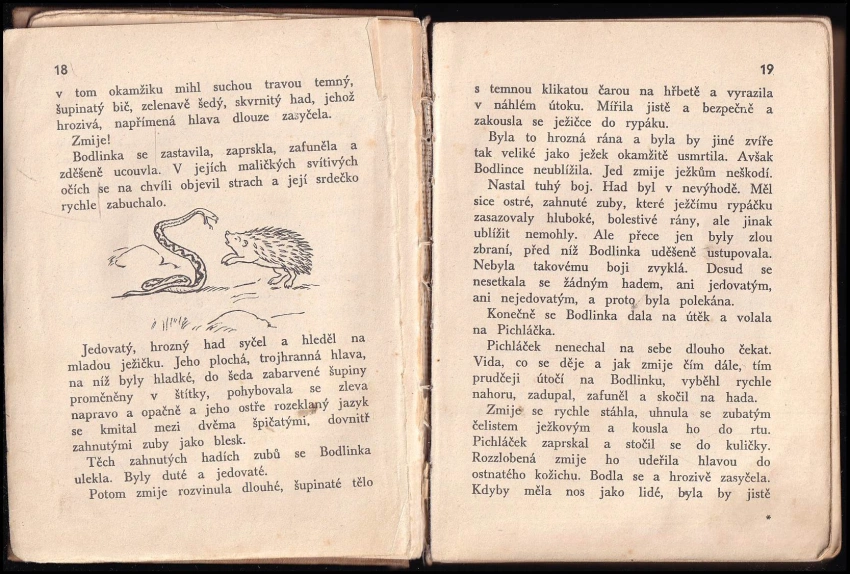 18
v tom okamžiku mihl suchou travou temný,
šupinatý bič, zelenavě šedý, skvrnitý had, jehož
hrozivá, napřímená hlava dlouze zasyčela.
Zmije!
Bodlinka se zastavila, zaprskla, zafuněla a
zděšeně ucouvla. V jejích maličkých svítivých
očích se na chvíli objevil strach a její srdečko
rychle zabuchalo.
Jedovatý, hrozný had syčel a hleděl na
mladou ježičku. Jeho plochá, trojhranná hlava,
na níž byly hladké, do šeda zabarvené šupiny
proměněny v štítky, pohybovala se zleva
napravo a opačně a jeho ostře rozeklaný jazyk
se kmital mezi dvěma špičatými, dovnitř
zahnutými zuby jako blesk.
Těch zahnutých hadích zubů se Bodlinka
ulekla. Byly duté a jedovaté.
Potom zmije rozvinula dlouhé, šupinaté tělo
19
s temnou klikatou čarou na hřbetě a vyrazila
v náhlém útoku. Mířila jistě a bezpečně a
zakousla se ježičce do rypáku.
Byla to hrozná rána a byla by jiné zvíře
tak veliké jako ježek okamžitě usmrtila. Avšak
Bodlince neublížila. Jed zmije ježkům neškodí.
Nastal tuhý boj. Had byl v nevýhodě. Měl
sice ostré, zahnuté zuby, které ježčímu rypáčku
zasazovaly hluboké, bolestivé rány, ale jinak
ublížit nemohly. Ale přece jen byly zlou
zbraní, před níž Bodlinka uděšeně ustupovala.
Nebyla takovému boji zvyklá. Dosud se
nesetkala se žádným hadem, ani jedovatým,
ani nejedovatým, a proto byla polekána.
Konečně se Bodlinka dala na útěk a volala
na Pichláčka.
Pichláček nenechal na sebe dlouho čekat.
Vida, co se děje a jak zmije čím dále, tím
prudčeji útočí na Bodlinku, vyběhl rychle
nahoru, zadupal, zafuněl a skočil na hada.
Zmije se rychle stáhla, uhnula se zubatým
čelistem ježkovým a kousla ho do rtu.
Pichláček zaprskal a stočil se do kuličky.
Rozzlobená zmije ho udeřila hlavou do
ostnatého kožichu. Bodla se a hrozivě zasyčela.
Kdyby měla nos jako lidé, byla by jistě
*